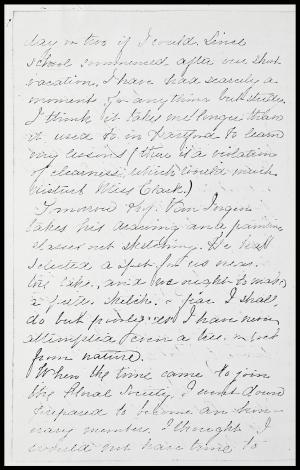 day or two if I could. Since
school commenced after our short
vacation, I have had scarcely a
moment for anything but studies.
I think it takes me longer than
it used to in Hartford to learn
my lessons (there is a violation
of clearness which would much
distract Miss Clark.)
Tomorrow Prof. Van Ingen
takes his drawing and painting
classes out sketching. He has
selected a spot for us near
the lake, and we ought to make
a fine sketch. I fear I shall
do but poorly as I have never
attempted even a tree
from nature.
When the time came to join
the Floral Society, I went down
prepared to become an hon-
orary member. I thought I
would not have time to